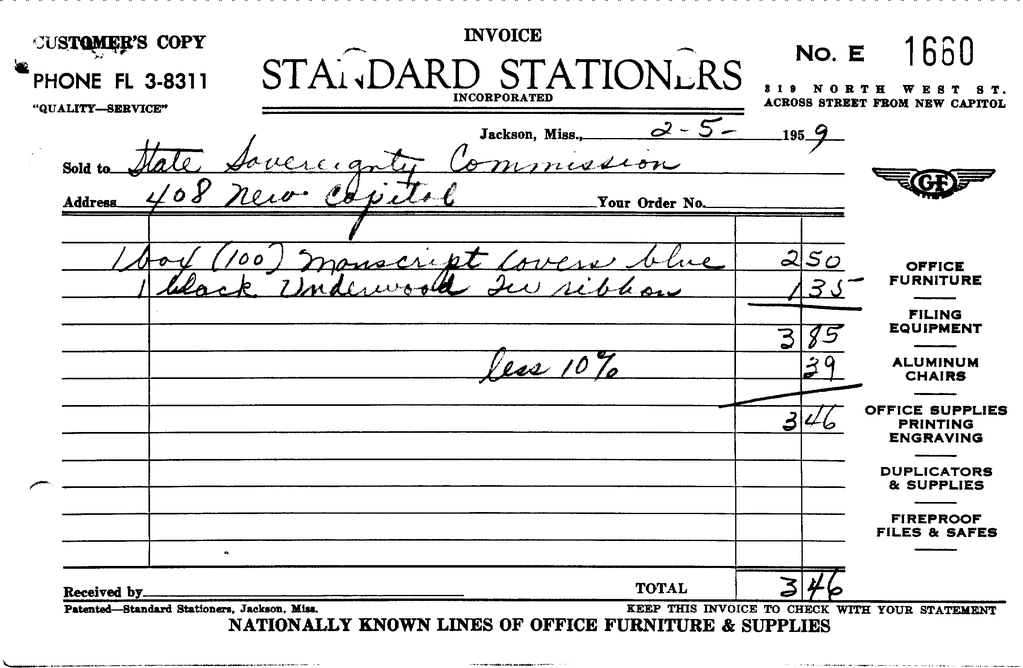 CUSTOMER'S COPY
INVOICE
No. E 1660
PHONE FL 3-8311
STANDARD STATIONERS
INCORPORATED
"QUALITY—SERVICE"
319 NORTH WEST ST.
ACROSS STREET FROM NEW CAPITOL
Jackson, Miss., 2-5- 1959
Sold to State Sovereignty Commission
Address 408 New Capitol Your Order No.
GF
1 box (100) Manscript Covers blue 2 50
1 black Underwood TW ribbon 1 35
3 85
less 10% 39
3 46
OFFICE
FURNITURE
FILING
EQUIPMENT
ALUMINUM
CHAIRS
OFFICE SUPPLIES
PRINTING
ENGRAVING
DUPLICATORS
& SUPPLIES
FIREPROOF
FILES & SAFES
Received by TOTAL 3 46
Patented—Standard Stationers, Jackson, Miss. KEEP THIS INVOICE TO CHECK WITH YOUR STATEMENT
NATIONALLY KNOWN LINES OF OFFICE FURNITURE & SUPPLIES